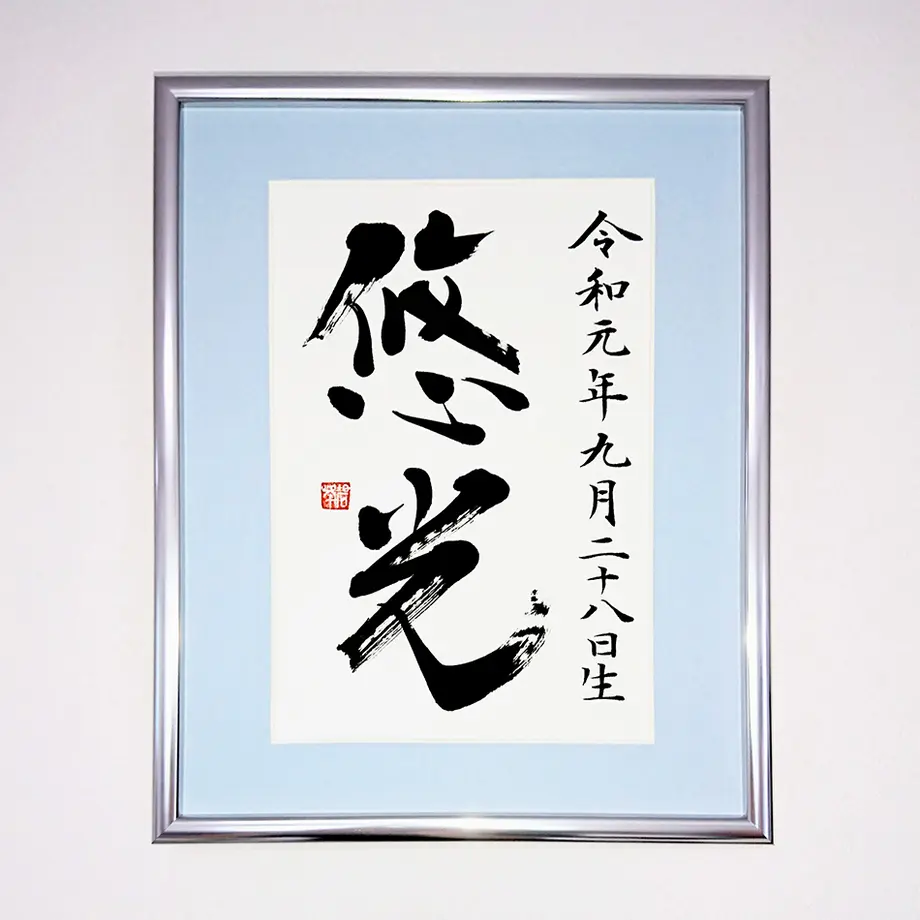 令和元年九月二十八日生
悠光